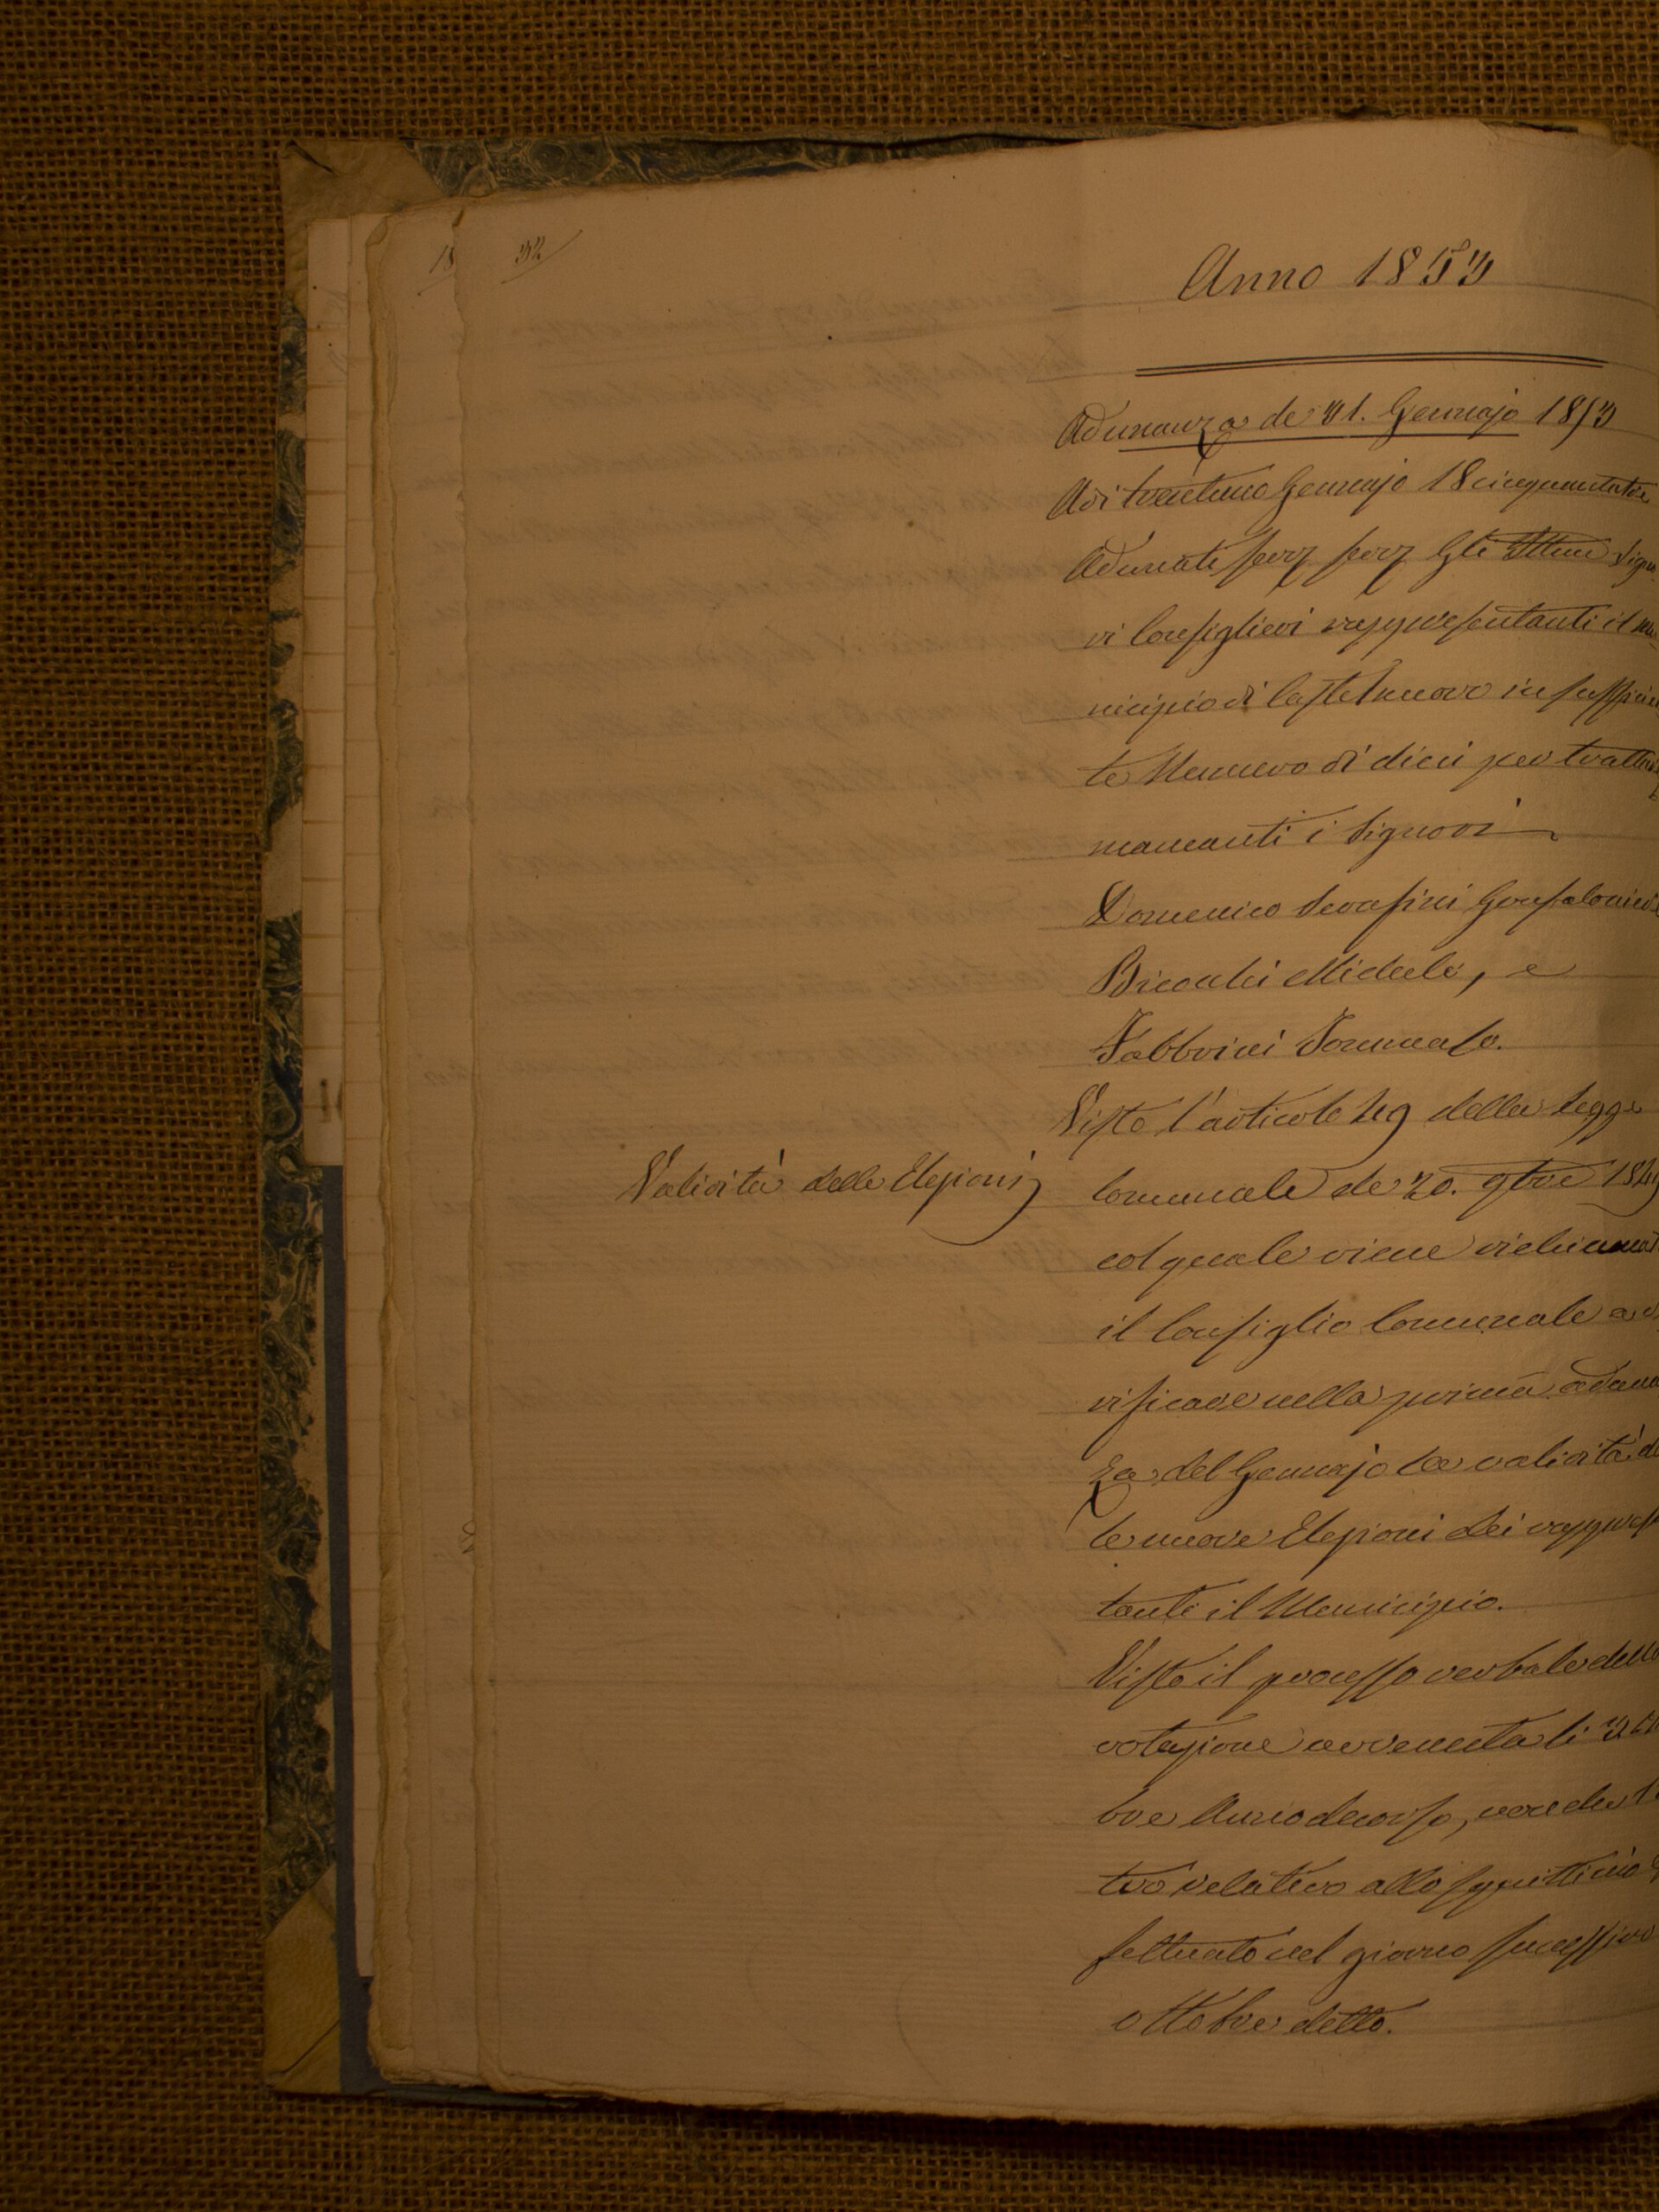 32
18
Anno 1853
Adunanza de 31. Gennajo 1853
Adi trentuno Gennajo 18cinquantatre
Adunati serz serz Gli Illmi Signo
ri Consiglieri rappresentanti il mu
nicipio di Castelnuovo in sufficien
te Numero di dieci per trattar
mancanti i Signori
Domenico Serafini Gonfaloniere
Bicocchi Michele, e
Fabbrini Tommaso.
Visto l'articolo 49 della Legge
Validità delle Elezioni
Comunale de 20. 9bre 1849
col quale viene richiamat
il Consiglio Comunale a ve
rificare nella prima aduna
za del Gennajo la validità de
le nuove Elezioni dei rappresen
tanti il Municipio.
Visto il processo verbale della
votazione avvenuta li
bre Anno decorso, non che l'
tro relativo allo squittinio
fettuato nel giorno successivo
ottobre detto.